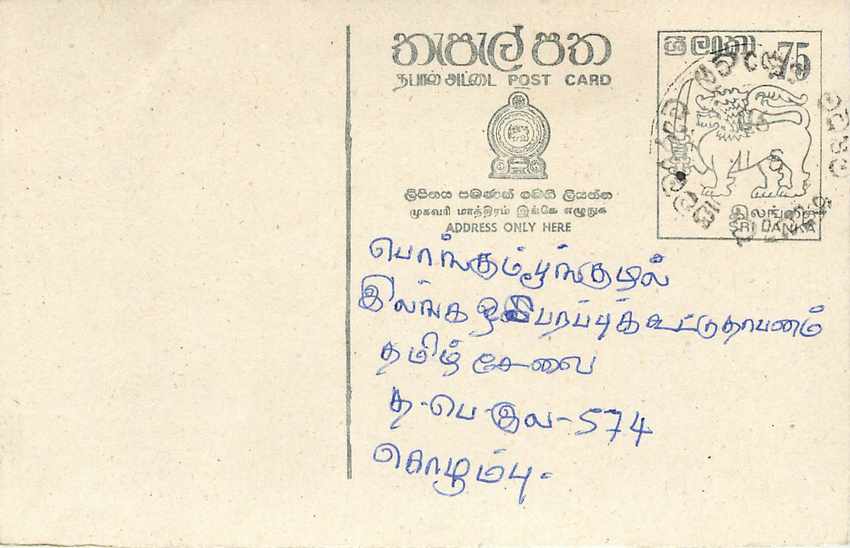 තැපැල් පත
தபால் அட்டை POST CARD
ලිපිනය පමණක් මෙහි ලියන්න
முகவரி மாத்திரம் இங்கே எழுதுக
ADDRESS ONLY HERE
ශ්‍රී ලංකා 75
இலங்கை
SRI LANKA
பொங்கும்பூங்குழல்
இலங்க ஒலிபரப்புக்கூட்டுதாபனம்
தமிழ் சேவை
த-பெ-இல-574
கொழும்பு.